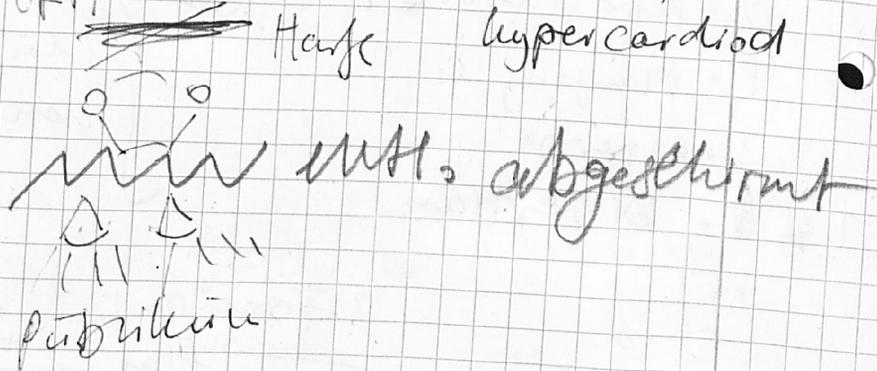 Harfe hypercardiod
entl. abgeschirmt
Publikum